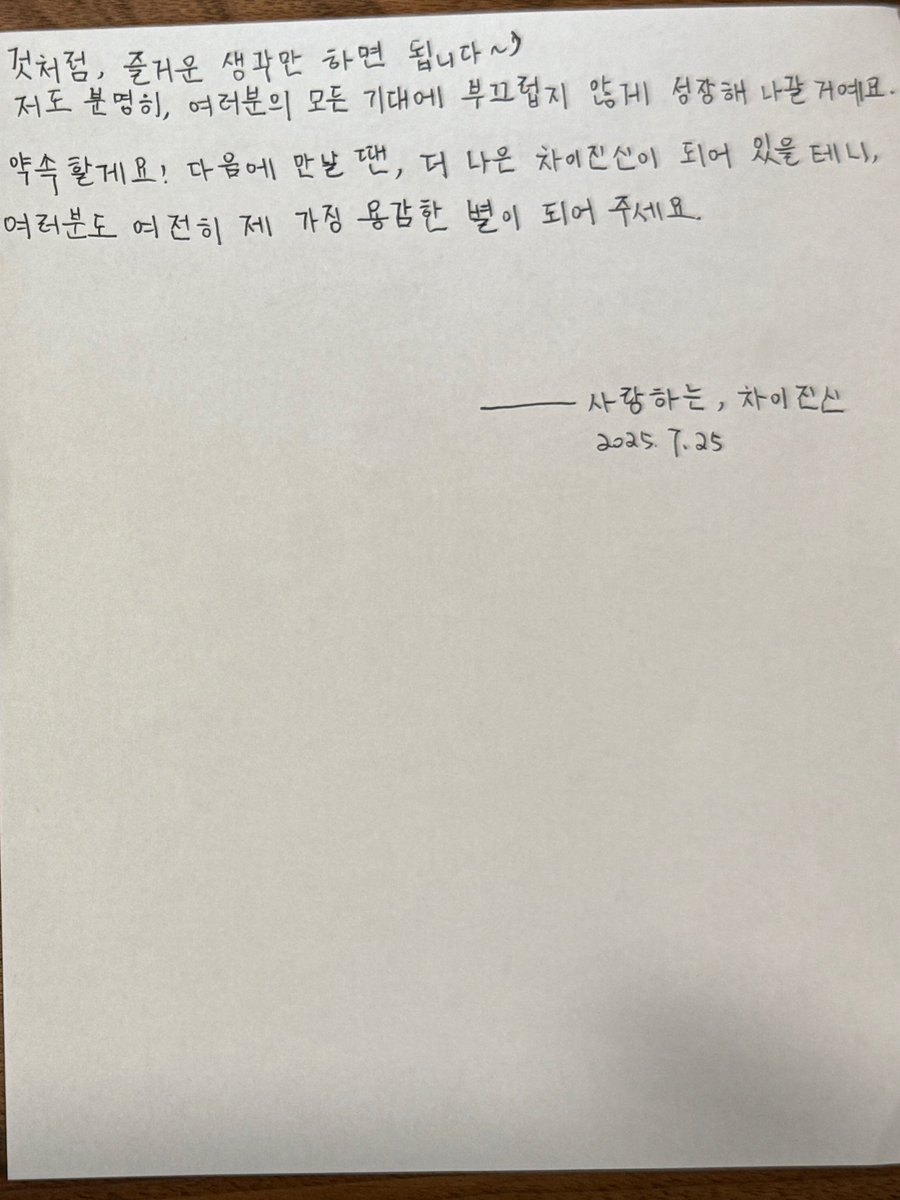 것처럼, 즐거운 생각만 하면 됩니다~♪
저도 분명히, 여러분의 모든 기대에 부끄럽지 않게 성장해 나갈 거예요.
약속할게요! 다음에 만날 땐, 더 나은 차이진신이 되어 있을 테니,
여러분도 여전히 제 가장 용감한 별이 되어 주세요.
—— 사랑하는, 차이진신
2025. 7. 25